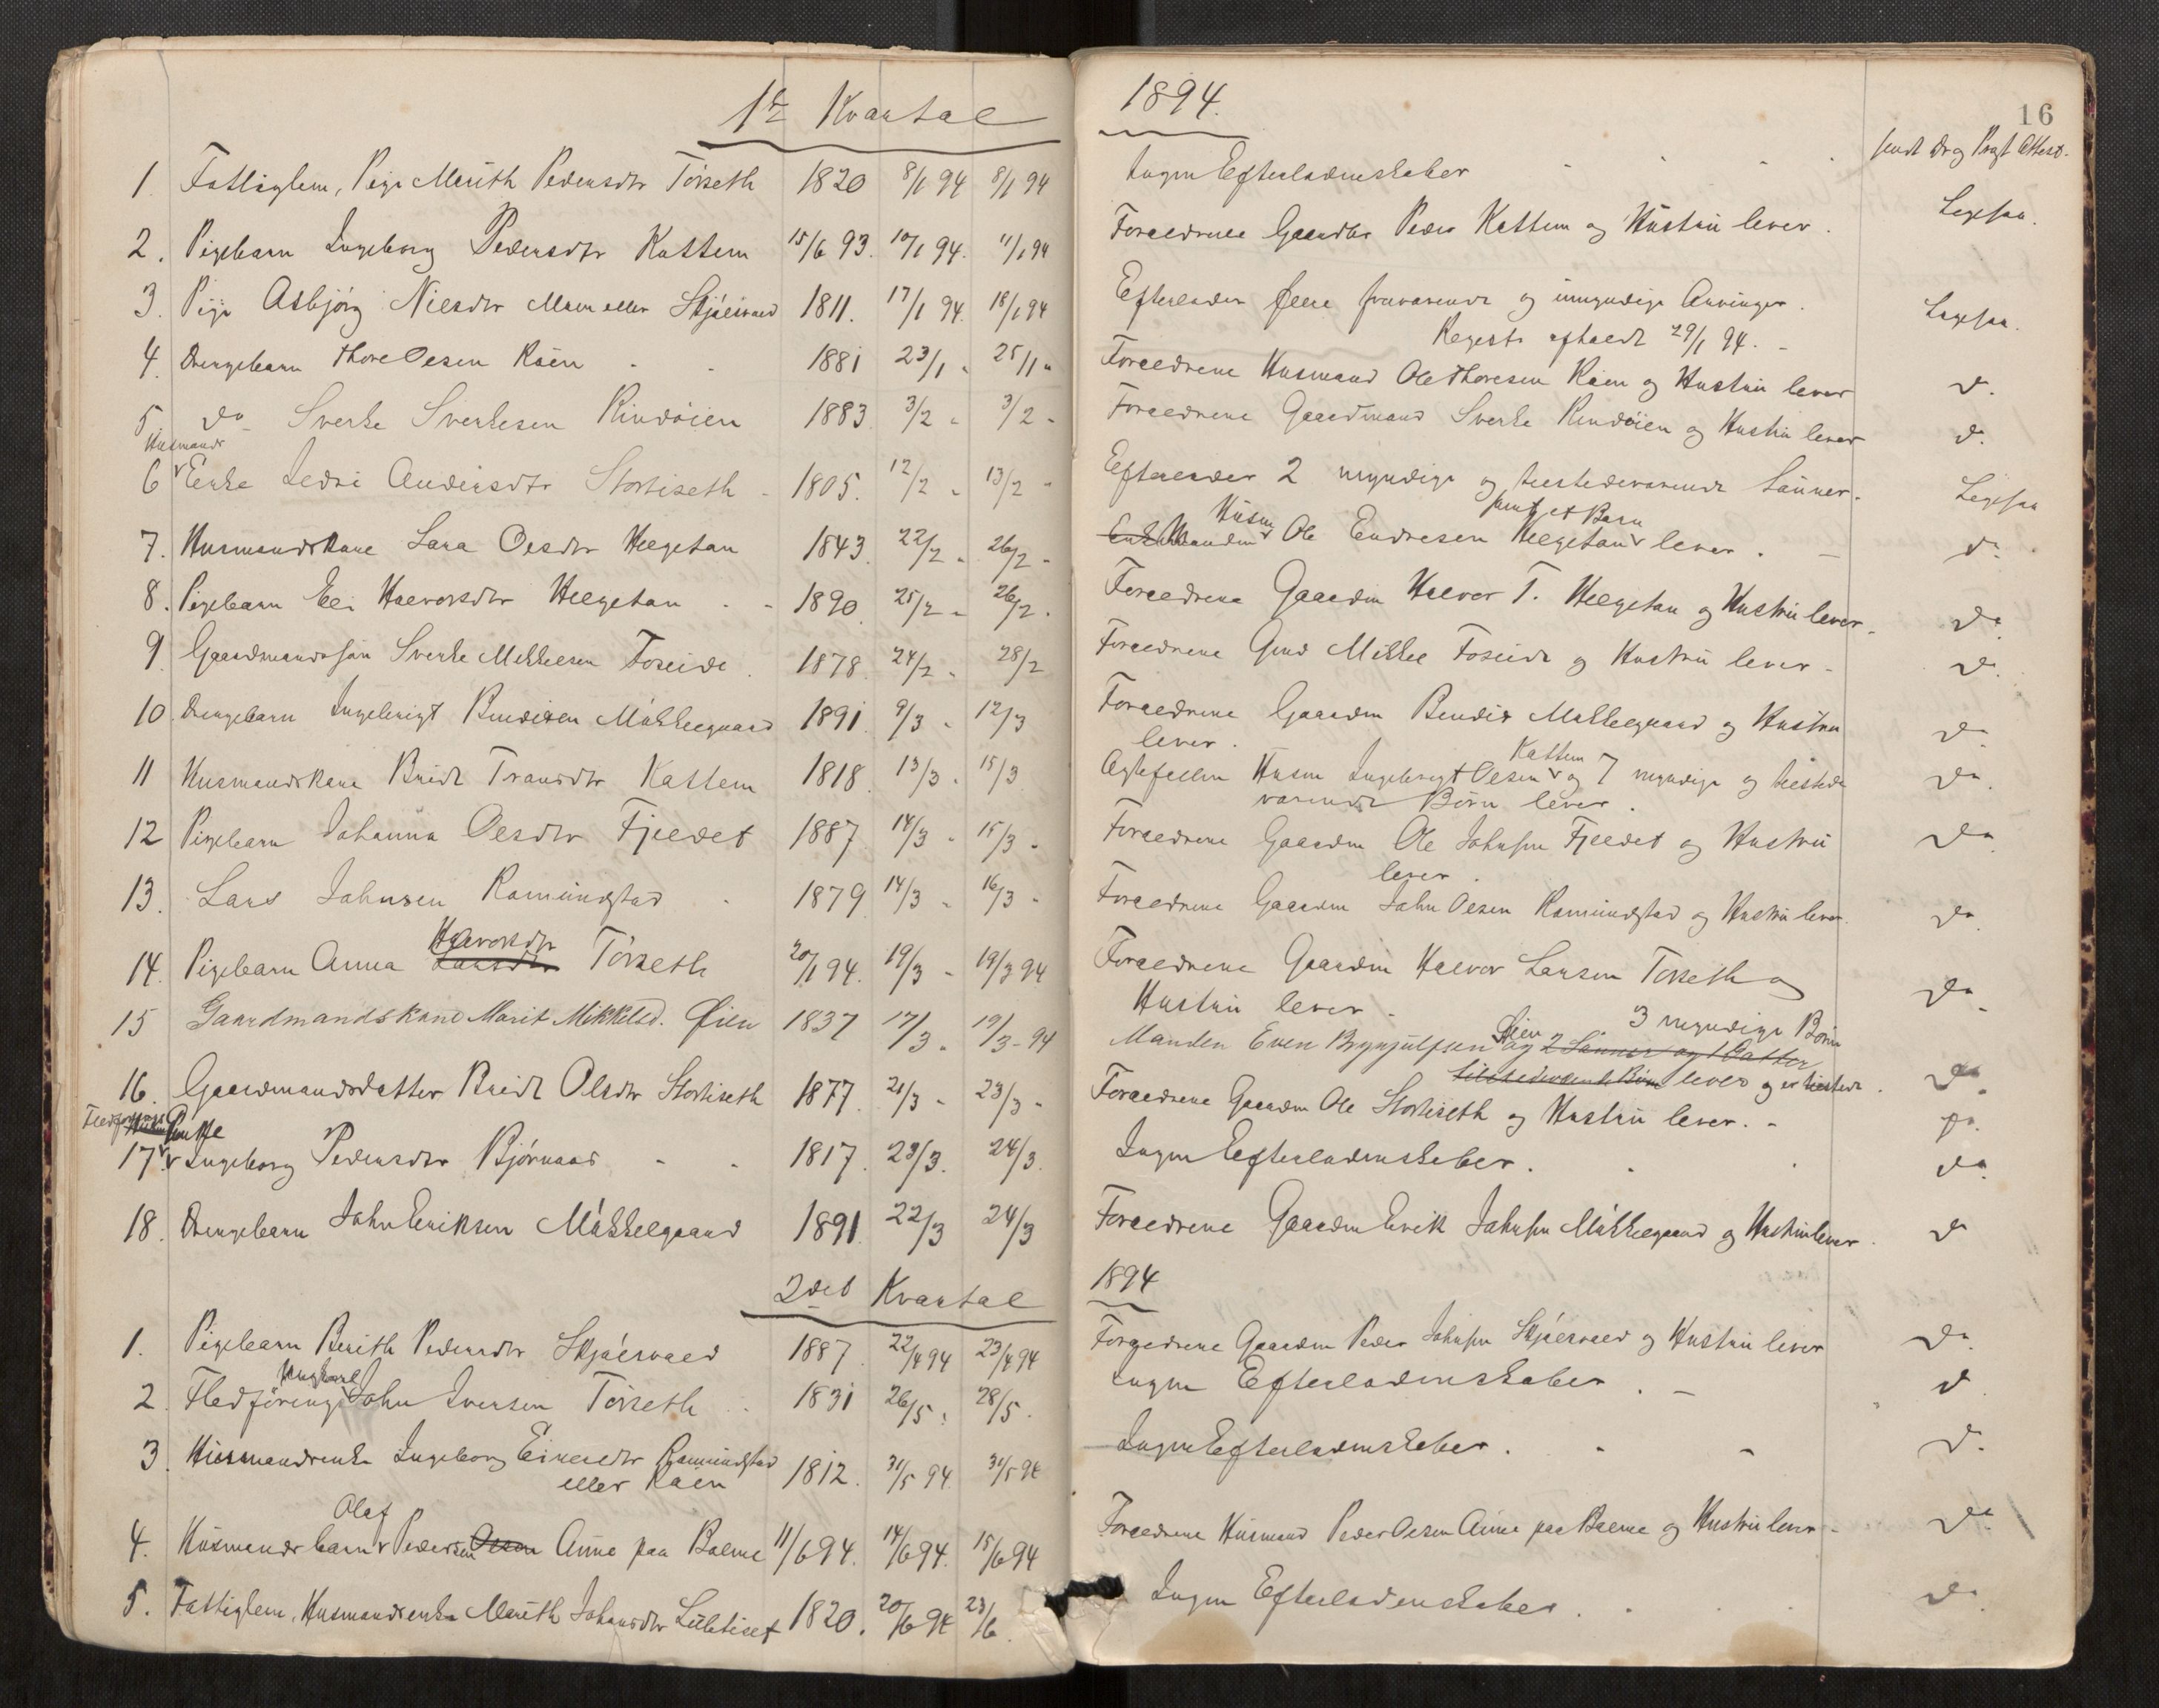 1ste Kvartal 1894.
16
sendt
1. Fattiglem, Pige Marith Pedersdtr Tørseth 1820 8/1 94 8/1 94 Ingen Efterladenskaber
2. Pigebarn Ingeborg Pedersdtr Kattem 15/6 93. 10/1 94. 11/1 94 Forældrene Gaardbr Peder Kattem og Hustru lever. Ligesaa.
3. Pige Asbjørg Nilsdtr eller Skjølsvold 1811. 17/1 94. 18/1 94 Efterlader flere fraværende og umyndige Arvinger. Ligesaa.
29/1 94.
4. Drengebarn Thore Olsen Raen 1881 23/1 " 25/1 " Forældrene Husmand Ole Thoresen Raen og Hustru lever do.
5 do Sverke Sverkesen Rindøien 1883. 3/2 " 3/2 " Forældrene Gaardmand Sverke Rindøien og Hustru lever do.
Husmands
6 Enke Sedsi Andersdtr Stortiseth 1805. 12/2 " 13/2 " Efterlader 2 myndige og tilstedeværende Sønner. Ligesaa
samt et Barn
7. Husmandskone Lara Olsdtr Helgetun 1843. 22/2 " 26/2 " Husm Ole Endresen Helgetun lever. do.
8. Pigebarn Eli Halvorsdtr Helgetun 1890. 25/2 " 26/2. Forældrene Gaardm Halvor T. Helgetun og Hustru lever. do.
9. Gaardmandssøn Sverke Mikkelsen Foseide 1878. 24/2 " 28/2 Forældrene Gmd Mikkel Foseide og Hustru lever. do.
10. Drengebarn Ingebrigt Bendixen Mükkelgaard 1891 9/3 " 12/3 Forældrene Gaardm Bendix Mükkelgaard og Hustru do.
lever.
11 Husmandskone Bridt Trondsdtr Kattem 1818. 13/3 " 15/3 Ægtefællen Husm Ingebrigt Olsen Kattem og 7 myndige og tilstede do.
værende Børn lever.
12 Pigebarn Johanna Olsdtr Fjeldet 1887 14/3 " 15/3 " Forældrene Gaardm Ole Johnsen Fjeldet og Hustru do.
lever.
13. Lars Johnsen Romundstad 1879 14/3 " 16/3 " Forældrene Gaardm John Olsen Romundstad og Hustru lever. do.
Halvorsdtr
14. Pigebarn Anna Larsdtr Tørseth 20/1 94. 19/3 " 19/3 94 Forældrene Gaardm Halvor Larsen Tørseth og do.
Hustru lever.
15 Gaardmandskone Marit Mikkelsd. Øien 1837 17/3 " 19/3 - 94 Manden Even Brynjulfsen Øien og 2 Sønner og 1 Datter
3 myndige Børn
tilstedeværende Børn lever og er tilstede. do.
16. Gaardmandsdatter Bridt Olsdtr Stortiseth 1877. 21/3 " 23/3 " Forældrene Gaardm Ole Stortiseth og Hustru lever. do.
17 Ingeborg Pedersdtr Bjørnaas 1817. 23/3. 24/3. Ingen Efterladenskaber. do.
18. Drengebarn John Eriksen Mükkelgaard 1891 22/3 24/3 Forældrene Gaardm Erik Johnsen Mükkelgaard og Hustru lever. do
2det Kvartal 1894
1. Pigebarn Berith Pedersdtr Skjølsvold 1887. 22/4 94 23/4 94 Forældrene Gaardm Peder Johnsen Skjølsvold og Hustru lever do.
Ungkarl
2. Fledføring John Iversen Tørseth 1831 26/5. 28/5. Ingen Efterladenskaber. do
3. Husmandsenke Ingeborg Romundstad 1812. 31/5 94. 31/5 94 Ingen Efterladenskaber. do.
eller Raen
Olaf
4. Husmandsbarn Pedersen Olsen Aune paa Bolme 11/6 94. 14/6 94. 15/6 94 Forældrene Husmand Peder Olsen Aune paa Bolme og Hustru lever. do.
5. Fattiglem, Husmandsenke Marith Johansdtr Litletiset 1820. 20/6 94 23/6. Ingen Efterladenskaber. do.